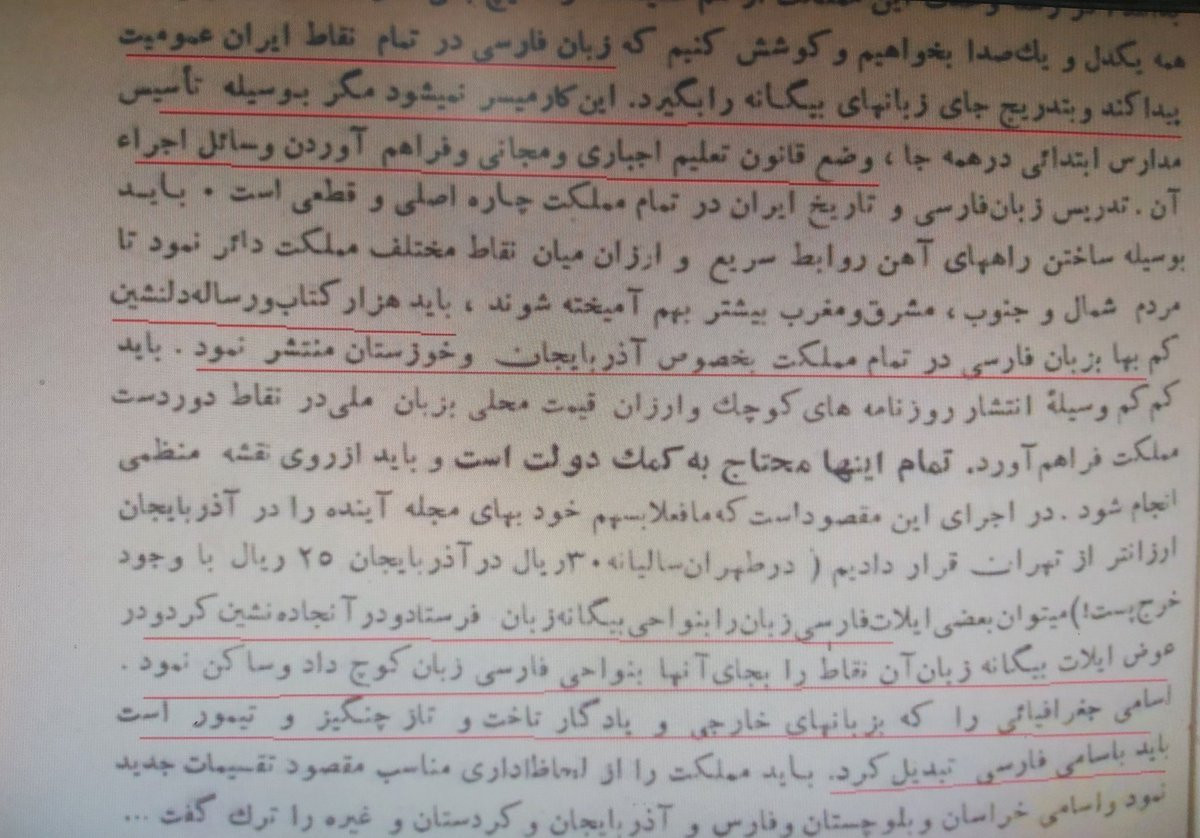 همه یکدل و یك‌صدا بخواهیم و کوشش کنیم که زبان فارسی در تمام نقاط ایران عمومیت
پیدا کند و بتدریج جای زبانهای بیگانه را بگیرد. این کار میسر نمیشود مگر بوسیله تأسیس
مدارس ابتدائی در همه جا ، وضع قانون تعلیم اجباری و مجانی و فراهم آوردن وسائل اجراء
آن . تدریس زبان فارسی و تاریخ ایران در تمام مملکت چاره اصلی و قطعی است . بایـد
بوسیله ساختن راههای آهن روابط سریع و ارزان میان نقاط مختلف مملکت دائر نمود تا
مردم شمال و جنوب ، مشرق و مغرب بیشتر بهم آمیخته شوند ، باید هزار کتاب و رساله دلنشین
کم بها بزبان فارسی در تمام مملکت بخصوص آذربایجان و خوزستان منتشر نمود . باید
کم کم وسیلهٔ انتشار روزنامه های کوچك و ارزان قیمت محلی بزبان ملی در نقاط دوردست
مملکت فراهم آورد. تمام اینها محتاج به کمك دولت است و باید از روی نقشه منظمی
انجام شود . در اجرای این مقصود است که ما فعلا بسهم خود بهای مجله آینده را در آذربایجان
ارزانتر از تهران قرار دادیم ( در طهران سالیانه ۳۰ ریال در آذربایجان ۲۵ ریال با وجود
خرج پست!) میتوان بعضی ایلات فارسی زبان را بنواحی بیگانه زبان فرستاد و در آنجا ده نشین کرد و در
عوض ایلات بیگانه زبان آن نقاط را بجای آنها بنواحی فارسی زبان کوچ داد و ساکن نمود .
اسامی جغرافیائی را که بزبانهای خارجی و یادگار تاخت و تاز چنگیز و تیمور است
باید باسامی فارسی تبدیل کرد. باید مملکت را از لحاظ اداری مناسب مقصود تقسیمات جدید
نمود و اسامی خراسان و بلوچستان و فارس و آذربایجان و کردستان و غیره را ترك گفت ...